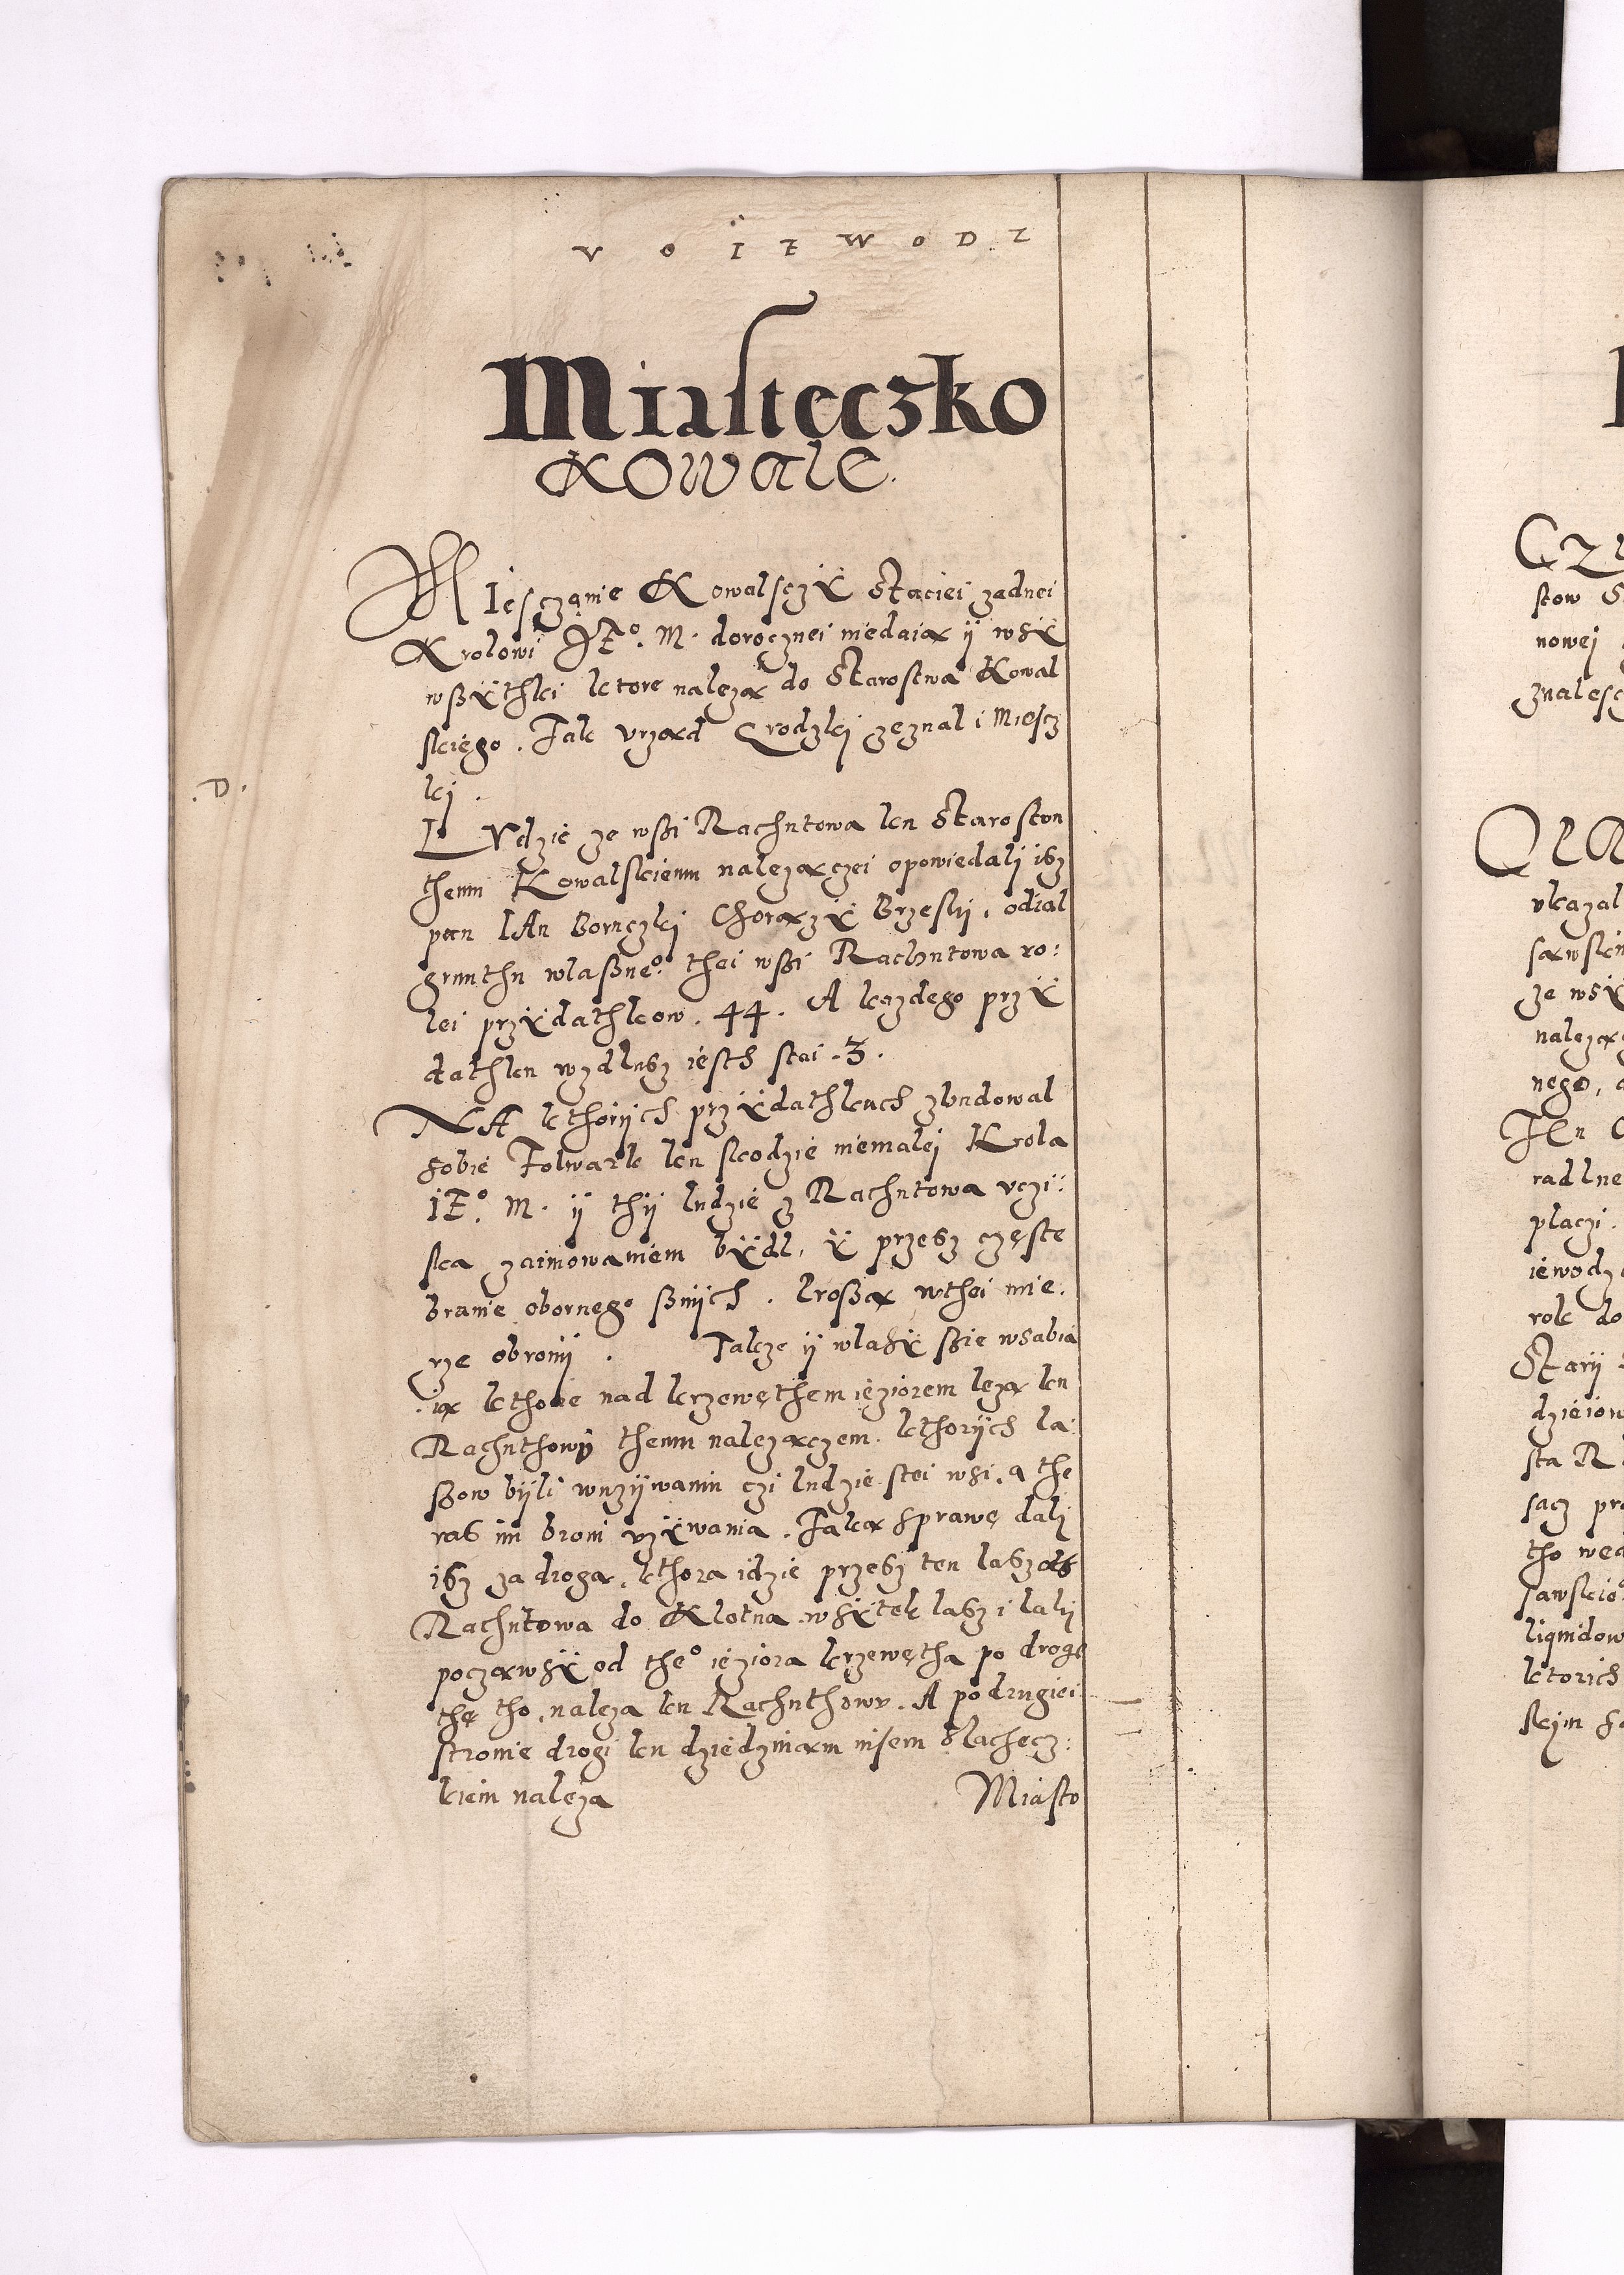 V O I E W O D Z
Miasteczko
KOWALE.
MIesczanie Kowalsczÿ Staciei zadnei
Krolowi JE°. M. dorocznei niedaią ÿ wsÿ
wßÿthki ktore należą do Starostwa Kowal
skiego. Tak vrząd Grodzkj zeznal i Miescz
kj.
.D.
LVdzie ze wßi Rachutowa ku Starostw
themu Kowalskiemu należączei opowiedalj isz
pan IAn Bornczkj Chorązÿ Brzeskÿ, odial
grunthu wlaßne°. thei wßi Rachutowa ro:
lei przÿdathkow. 44. A kazdego przÿ
dathku wzdlusz iesth stai. 3.
NA kthorÿch przÿdathkach zbudowal
sobie Folwark ku skodzie niemalej Krola
IE°. M. ÿ thÿ ludzie z Rachutowa vczi:
ska zaimowaniem bÿdl, ÿ przesz częste
branie obornego ßnÿch. Proßą wthei mie.
rze obronÿ. Takze ÿ wlasÿ ßie wsabia
ią kthore nad krzewęthem ieziorem leżą ku
Rachuthowÿ themu należączem. kthorÿch la:
ßow bÿli wuzÿwaniu czi ludzie stei wsi, a the
ras im broni vzÿwania. Taką sprawę dalj
isz za drogą, kthora idzie przesz ten lasz ods
Rachutowa do Klotna wsÿtek lasz i laki
począwsÿ od the° ieziora krzewętha po drogę
thę tho, należa ku Rachuthowv. A podrugiei
stronie drogi ku dziedzinam insem Slachecz:
kiem należa
Miasto
CZ
stow S
nowej
znalesc
vkazal
sąwskie
ze wsÿ
należą
nego, a
IEn
radlne
placzi.
iewodz
rok do
Starÿ
dzieiow
sta R
sacz pr
tho wed
sawskie
liquidow
ktorich
skim